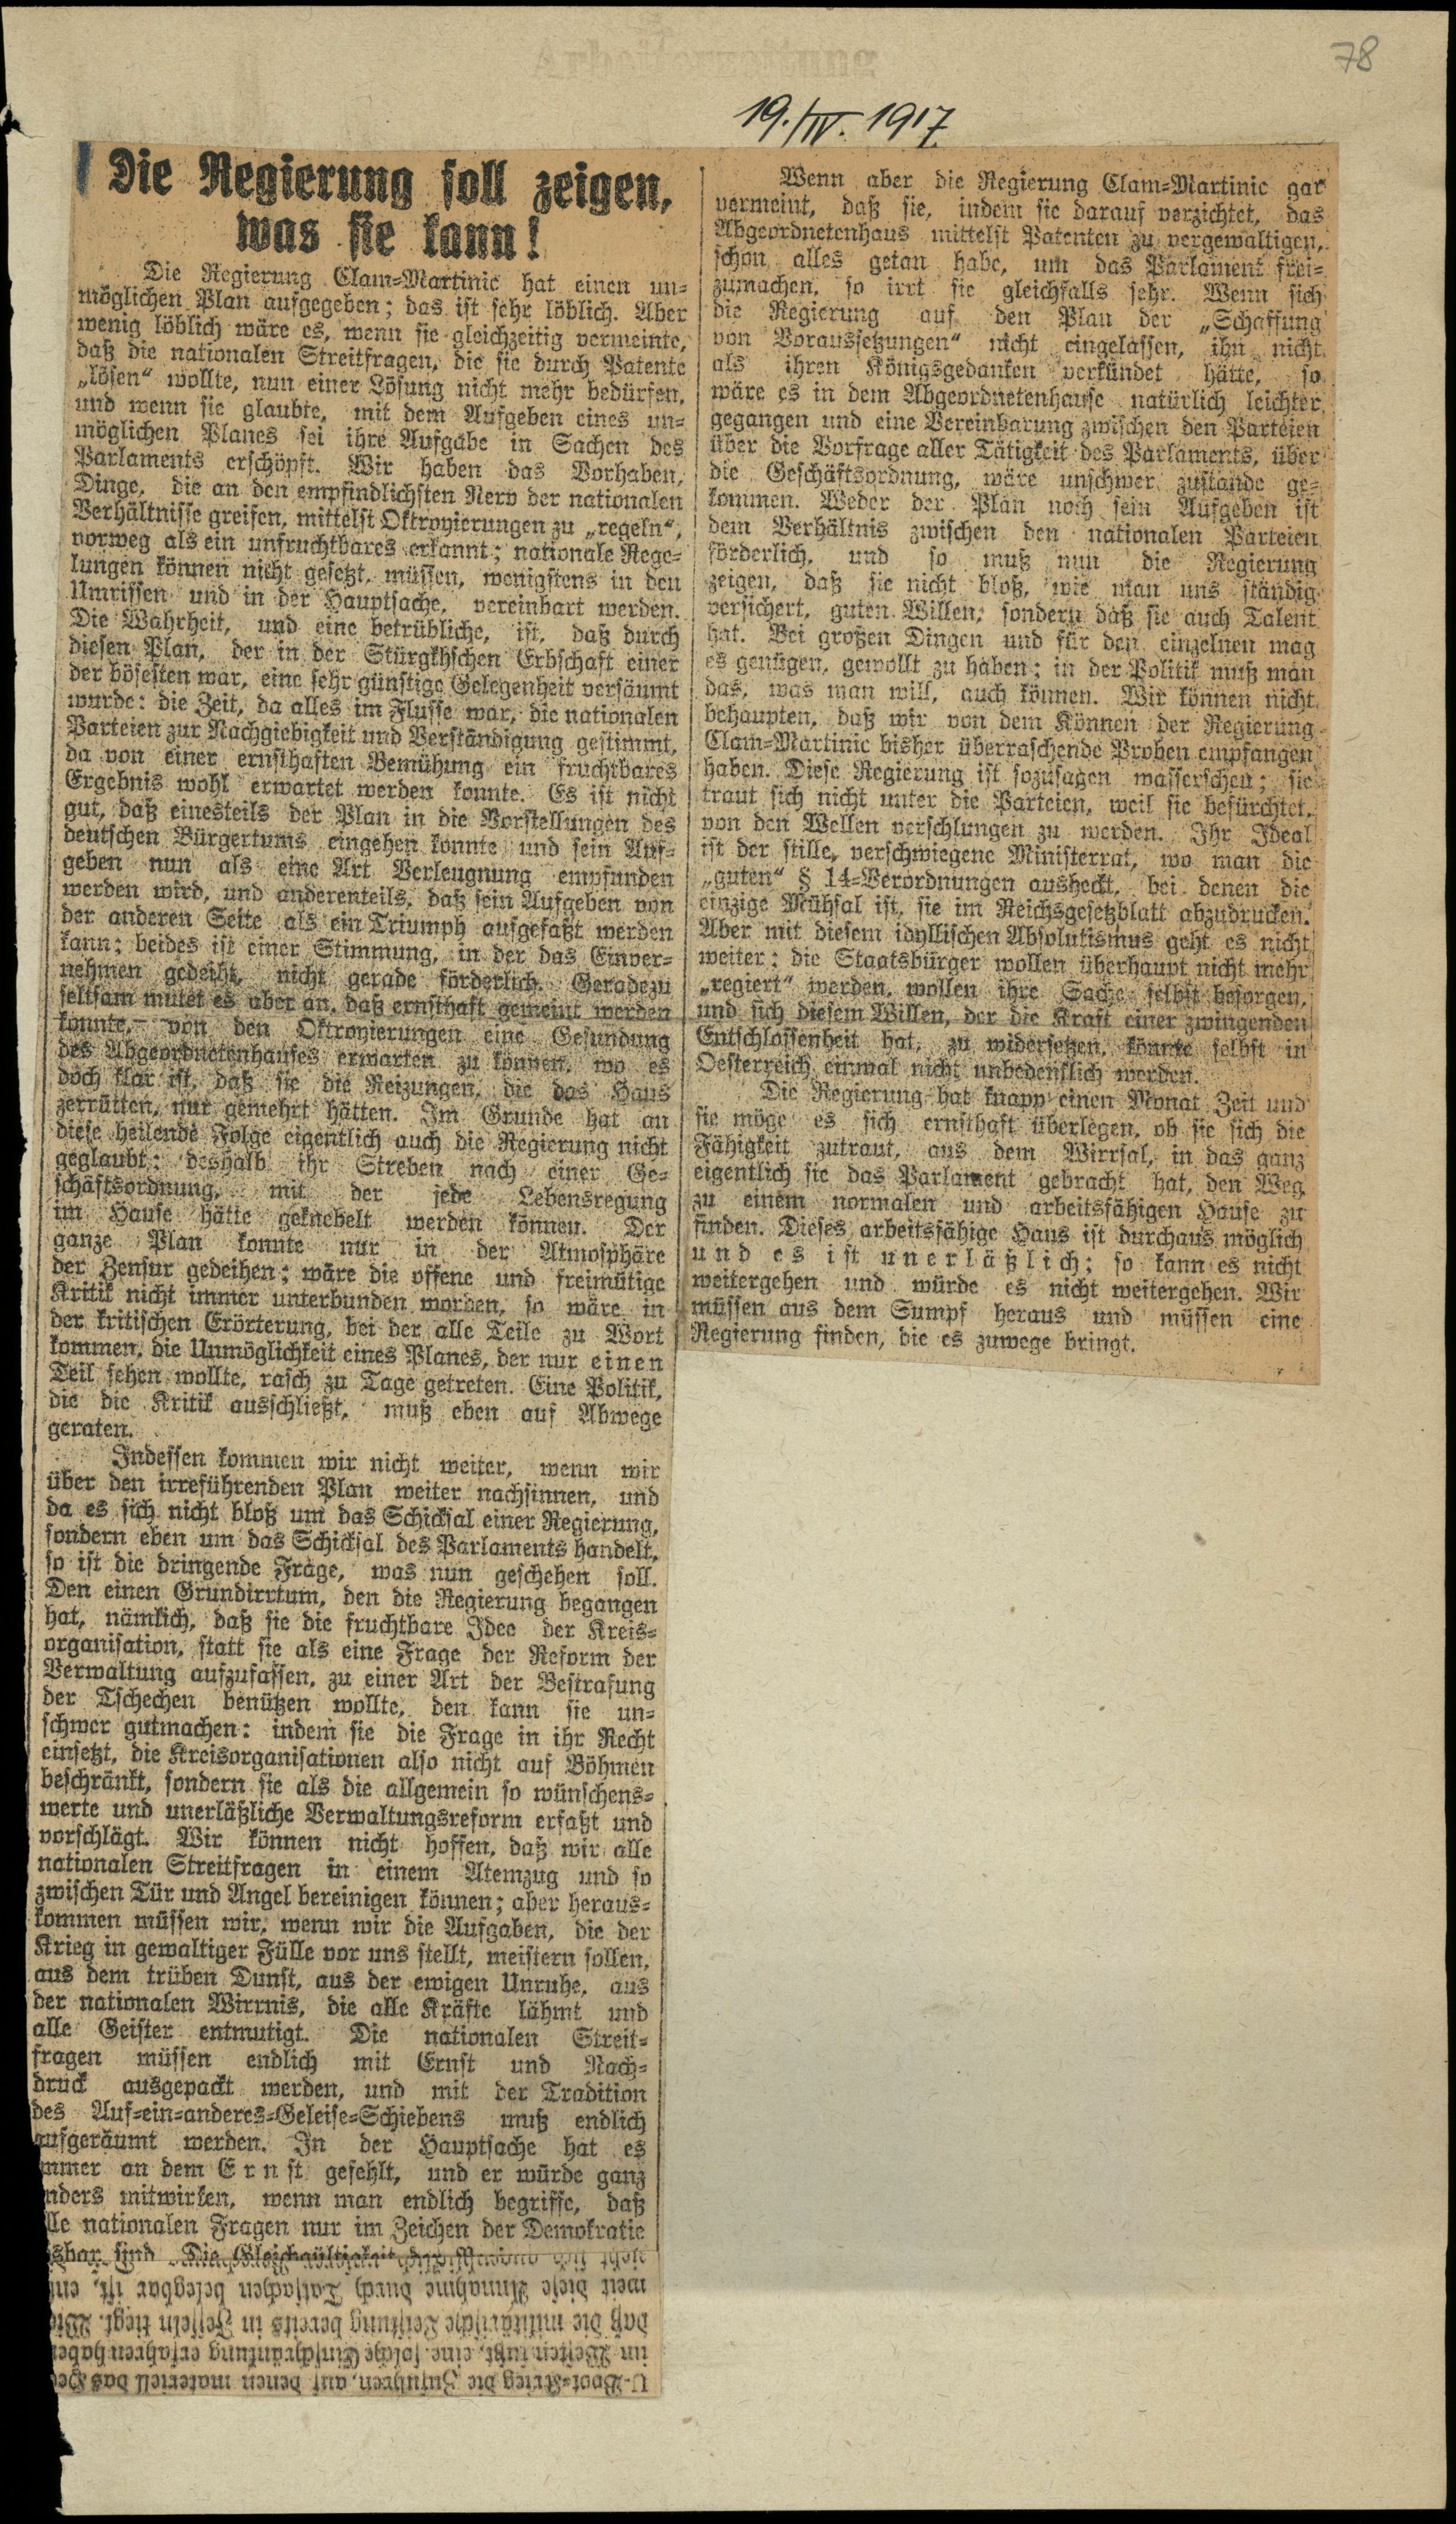 78
19./IV. 1917.
Die Regierung soll zeigen,
was sie kann!
Die Regierung Clam-Martinic hat einen un-
möglichen Plan aufgegeben; das ist sehr löblich. Aber
wenig löblich wäre es, wenn sie gleichzeitig vermeinte,
daß die nationalen Streitfragen, die sie durch Patente
„lösen“ wollte, nun einer Lösung nicht mehr bedürfen,
und wenn sie glaubte, mit dem Aufgeben eines un-
möglichen Planes sei ihre Aufgabe in Sachen des
Parlaments erschöpft. Wir haben das Vorhaben,
Dinge, die an den empfindlichsten Nerv der nationalen
Verhältnisse greifen, mittelst Oktroyierungen zu „regeln“,
vorweg als ein unfruchtbares erkannt; nationale Rege-
lungen können nicht gesetzt, müssen, wenigstens in den
Umrissen und in der Hauptsache, vereinbart werden.
Die Wahrheit, und eine betrübliche, ist, daß durch
diesen Plan, der in der Stürgkhschen Erbschaft einer
der bösesten war, eine sehr günstige Gelegenheit versäumt
wurde: die Zeit, da alles im Flusse war, die nationalen
Parteien zur Nachgiebigkeit und Verständigung gestimmt,
da von einer ernsthaften Bemühung ein fruchtbares
Ergebnis wohl erwartet werden konnte. Es ist nicht
gut, daß einesteils der Plan in die Vorstellungen des
deutschen Bürgertums eingehen konnte und sein Auf-
geben nun als eine Art Verleugnung empfunden
werden wird, und anderenteils, daß sein Aufgeben von
der anderen Seite als ein Triumph aufgefaßt werden
kann; beides ist einer Stimmung, in der das Einver-
nehmen gedeiht, nicht gerade förderlich. Geradezu
seltsam mutet es aber an, daß ernsthaft gemeint werden
konnte, von den Oktroyierungen eine Gesundung
des Abgeordnetenhauses erwarten zu können, wo es
doch klar ist, daß sie die Reizungen, die das Haus
zerrütten, nur gemehrt hätten. Im Grunde hat an
diese heilende Folge eigentlich auch die Regierung nicht
geglaubt; deshalb ihr Streben nach einer Ge-
schäftsordnung, mit der jede Lebensregung
im Hause hätte geknebelt werden können. Der
ganze Plan konnte nur in der Atmosphäre
der Zensur gedeihen; wäre die offene und freimütige
Kritik nicht immer unterbunden worden, so wäre in
der kritischen Erörterung, bei der alle Teile zu Wort
kommen, die Unmöglichkeit eines Planes, der nur einen
Teil sehen wollte, rasch zu Tage getreten. Eine Politik,
die die Kritik ausschließt, muß eben auf Abwege
geraten.
Indessen kommen wir nicht weiter, wenn wir
über den irreführenden Plan weiter nachsinnen, und
da es sich nicht bloß um das Schicksal einer Regierung,
sondern eben um das Schicksal des Parlaments handelt,
so ist die dringende Frage, was nun geschehen soll.
Den einen Grundirrtum, den die Regierung begangen
hat, nämlich, daß sie die fruchtbare Idee der Kreis-
organisation, statt sie als eine Frage der Reform der
Verwaltung aufzufassen, zu einer Art der Bestrafung
der Tschechen benützen wollte, den kann sie un-
schwer gutmachen: indem sie die Frage in ihr Recht
einsetzt, die Kreisorganisationen also nicht auf Böhmen
beschränkt, sondern sie als die allgemein so wünschens-
werte und unerläßliche Verwaltungsreform erfaßt und
vorschlägt. Wir können nicht hoffen, daß wir alle
nationalen Streitfragen in einem Atemzug und so
zwischen Tür und Angel bereinigen können; aber heraus-
kommen müssen wir, wenn wir die Aufgaben, die der
Krieg in gewaltiger Fülle vor uns stellt, meistern sollen,
aus dem trüben Dunst, aus der ewigen Unruhe, aus
der nationalen Wirrnis, die alle Kräfte lähmt und
alle Geister entmutigt. Die nationalen Streit-
fragen müssen endlich mit Ernst und Nach-
druck ausgepackt werden, und mit der Tradition
des Auf-ein-anderes-Geleise-Schiebens muß endlich
aufgeräumt werden. In der Hauptsache hat es
mmer an dem Ernst gefehlt, und er würde ganz
nders mitwirken, wenn man endlich begriffe, daß
lle nationalen Fragen nur im Zeichen der Demokratie
sbar sind. Die Gleichgültigkeit der
weit diese Annahme durch Tatsachen belegbar ist,
daß die militärische Leistung bereits in Fesseln liegt.
im Westen liegt, eine solche Einschränkung erfahren haben
U-Boot-Krieg die Zufuhren, auf denen materiell das
Wenn aber die Regierung Clam-Martinic gar
vermeint, daß sie, indem sie darauf verzichtet, das
Abgeordnetenhaus mittelst Patenten zu vergewaltigen,
schon alles getan habe, um das Parlament frei-
zumachen, so irrt sie gleichfalls sehr. Wenn sich
die Regierung auf den Plan der „Schaffung
von Voraussetzungen“ nicht eingelassen, ihn nicht
als ihren Königsgedanken verkündet hätte, so
wäre es in dem Abgeordnetenhause natürlich leichter
gegangen und eine Vereinbarung zwischen den Parteien
über die Vorfrage aller Tätigkeit des Parlaments, über
die Geschäftsordnung, wäre unschwer zustande ge-
kommen. Weder der Plan noch sein Aufgeben ist
dem Verhältnis zwischen den nationalen Parteien
förderlich, und so muß nun die Regierung
zeigen, daß sie nicht bloß, wie man uns ständig
versichert, guten Willen, sondern daß sie auch Talent
hat. Bei großen Dingen und für den einzelnen mag
es genügen, gewollt zu haben; in der Politik muß man
das, was man will, auch können. Wir können nicht
behaupten, daß wir von dem Können der Regierung
Clam-Martinic bisher überraschende Proben empfangen
haben. Diese Regierung ist sozusagen wasserscheu; sie
traut sich nicht unter die Parteien, weil sie befürchtet,
von den Wellen verschlungen zu werden. Ihr Ideal
ist der stille, verschwiegene Ministerrat, wo man die
„guten“ § 14-Verordnungen ausheckt, bei denen die
einzige Mühsal ist, sie im Reichsgesetzblatt abzudrucken.
Aber mit diesem idyllischen Absolutismus geht es nicht
weiter; die Staatsbürger wollen überhaupt nicht mehr
„regiert“ werden, wollen ihre Sache selbst besorgen,
und sich diesem Willen, der die Kraft einer zwingenden
Entschlossenheit hat, zu widersetzen, könnte selbst in
Oesterreich einmal nicht unbedenklich werden.
Die Regierung hat knapp einen Monat Zeit und
sie möge es sich ernsthaft überlegen, ob sie sich die
Fähigkeit zutraut, aus dem Wirrsal, in das ganz
eigentlich sie das Parlament gebracht hat, den Weg
zu einem normalen und arbeitsfähigen Hause zu
finden. Dieses arbeitsfähige Haus ist durchaus möglich
und es ist unerläßlich; so kann es nicht
weitergehen und würde es nicht weitergehen. Wir
müssen aus dem Sumpf heraus und müssen eine
Regierung finden, die es zuwege bringt.